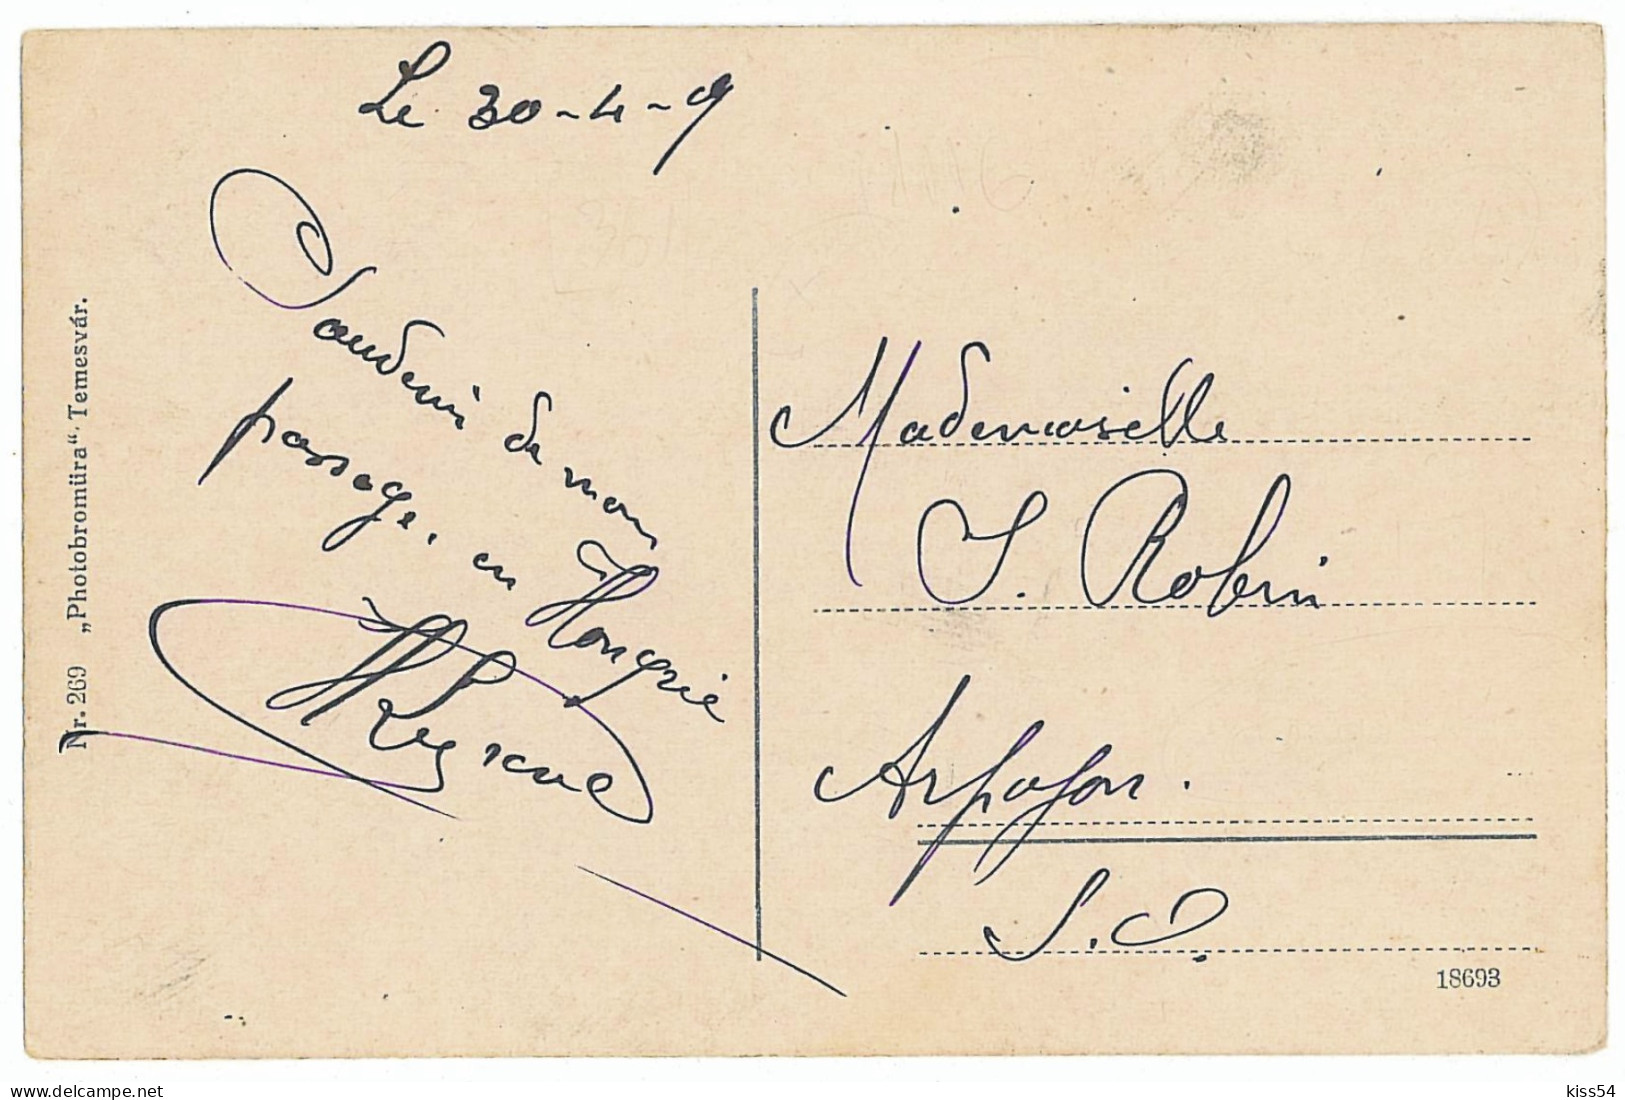 Le 30-4-9
Souvenir de mon
passage, en
Hongrie
Mademoiselle
S. Robin
Arpajon.
S.O.
Nr. 269 „Photobromüra“ Temesvár.
18693
kiss54